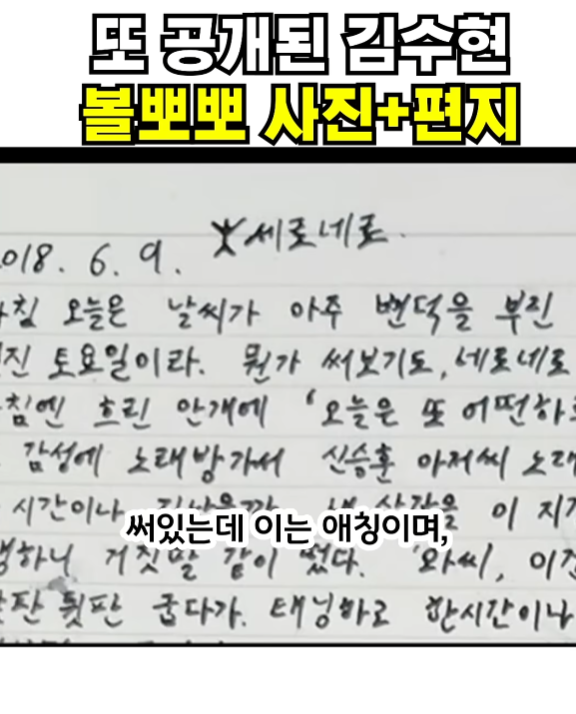 또 공개된 김수현
볼뽀뽀 사진+편지
세로네로.
018. 6. 9.
침 오늘은 날씨가 아주 변덕을 부린
진 토요일이라. 뭔가 써보기도, 네로네로
침엔 흐린 안개에 '오늘은 또 어떤하
감성에 노래방가서 신승훈 아저씨 노래
시간이나 이 지
써있는데 이는 애칭이며,
하니 거짓말 같이 떴다. '와씨, 이
판 뒷판 굽다가. 태닝하고 한시간이나